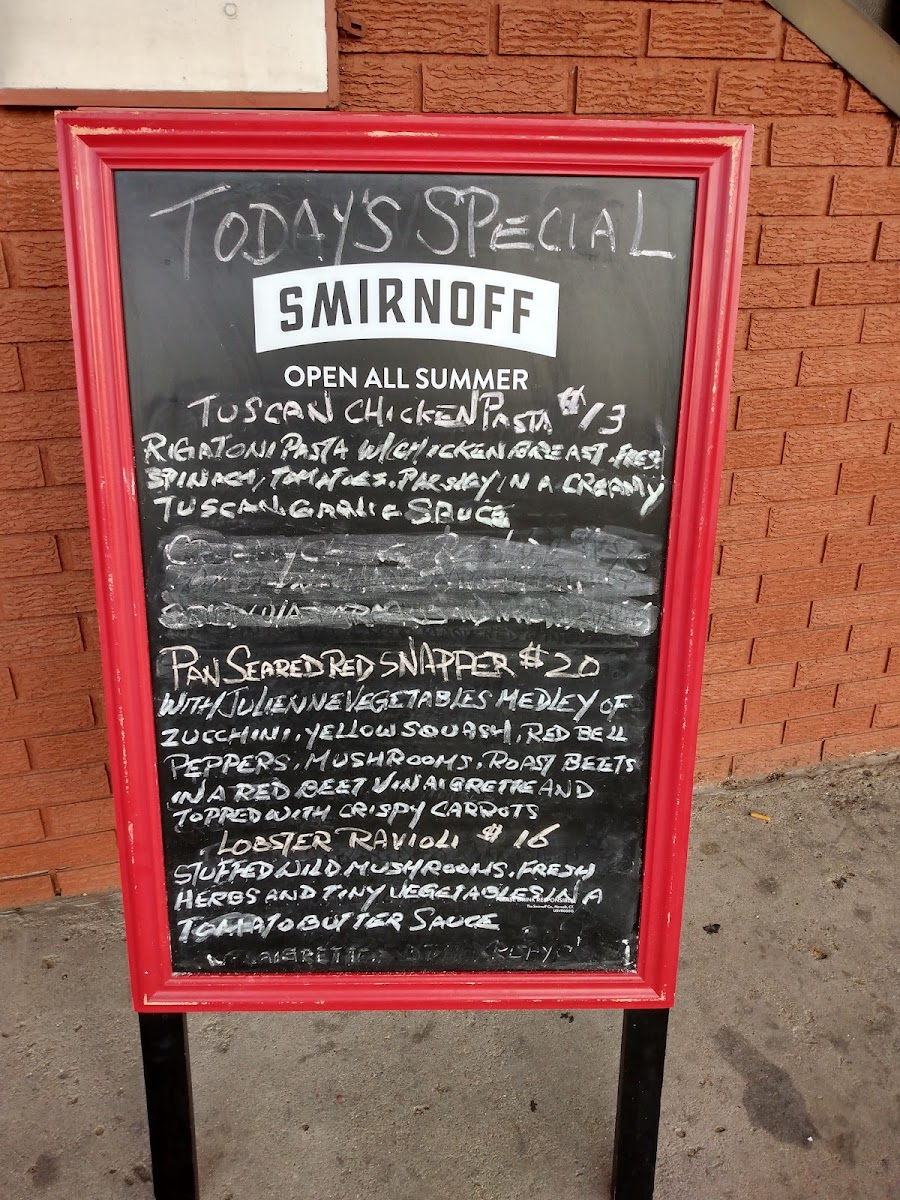 TODAY'S SPECIAL
SMIRNOFF
OPEN ALL SUMMER
TUSCAN CHICKEN PASTA $13
RIGATONI PASTA W/CHICKEN BREAST, FRESH
SPINACH, TOMATOES, PARSLEY IN A CREAMY
TUSCAN GARLIC SAUCE
PAN SEARED RED SNAPPER $20
WITH JULIENNE VEGETABLES MEDLEY OF
ZUCCHINI, YELLOW SQUASH, RED BELL
PEPPERS, MUSHROOMS, ROAST BEETS
IN A RED BEET VINAIGRETTE AND
TOPPED WITH CRISPY CARROTS
LOBSTER RAVIOLI $16
STUFFED WILD MUSHROOMS, FRESH
HERBS AND TINY VEGETABLES IN A
PLEASE DRINK RESPONSIBLY
TOMATO BUTTER SAUCE